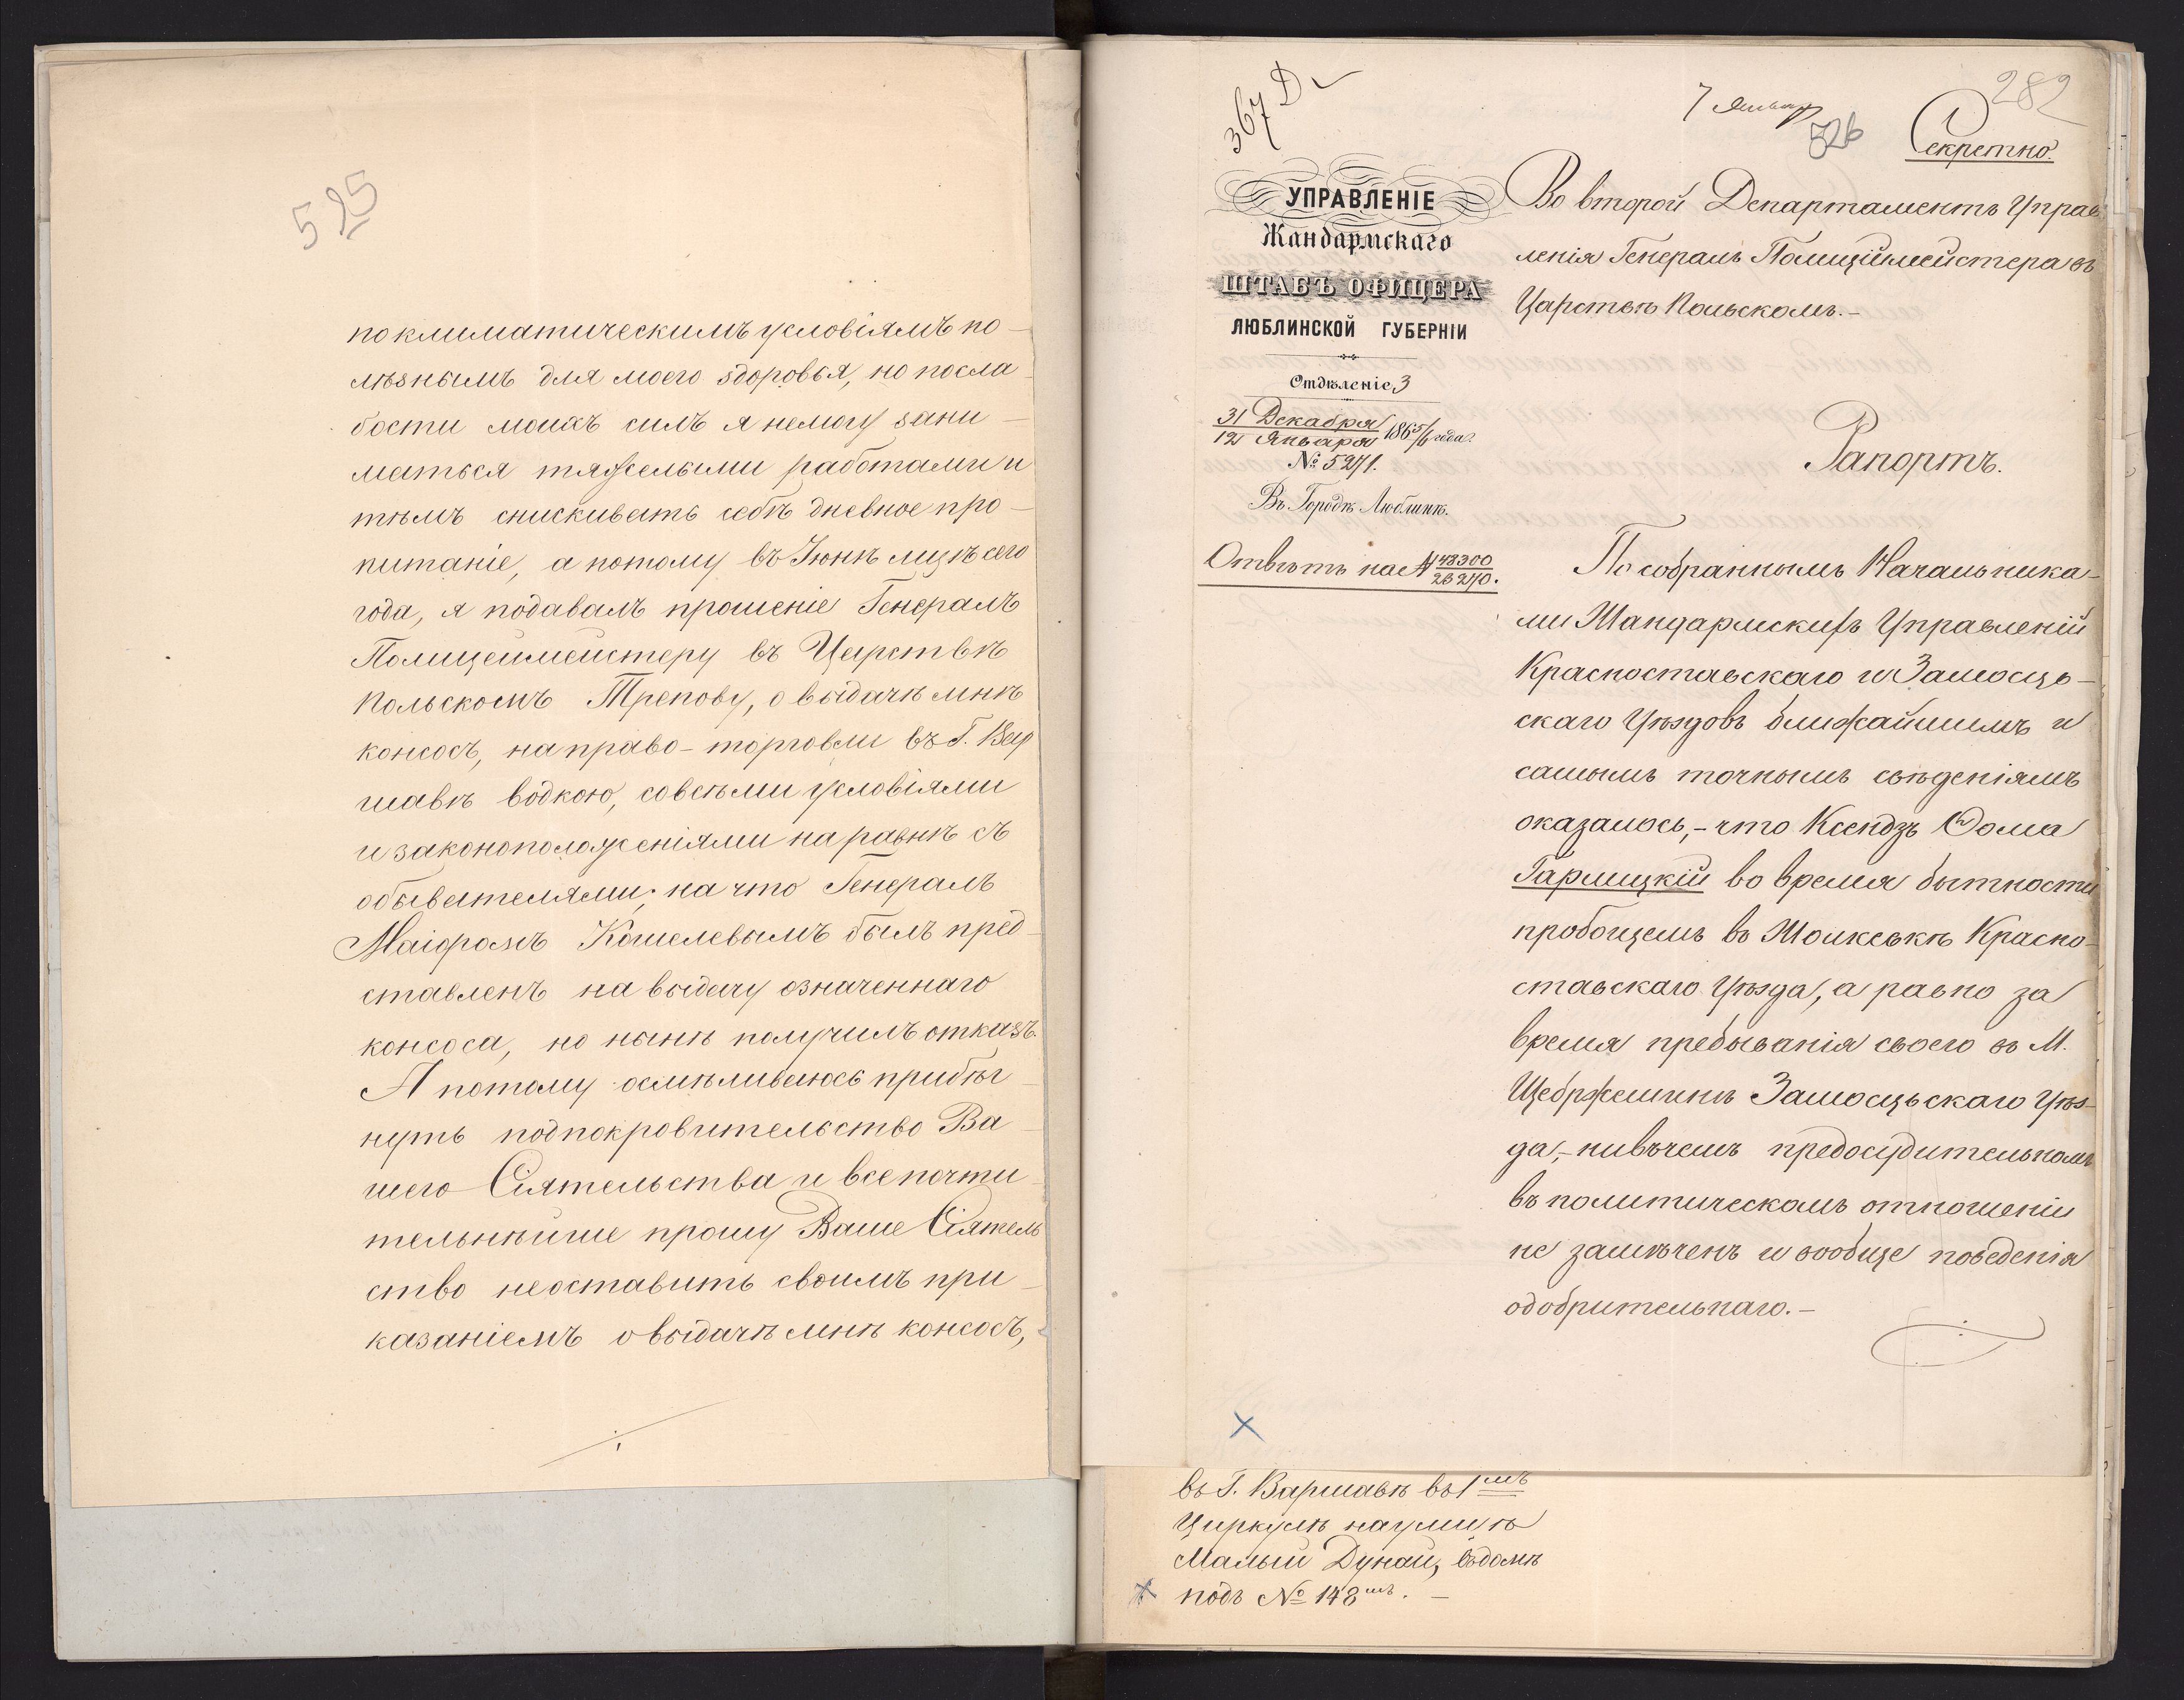 525
по климатическимъ условіямъ по-
лѣзнымъ для моего здоровья, но посла-
бости моихъ силъ я немогу зани-
маться тяжелыми работами и
тѣмъ снискивать себѣ дневное про-
питаніе, а потому въ Іюнѣ мцѣ сего
года, я подавалъ прошеніе Генералъ
Полицеймейстеру въ Царствѣ
Польскомъ Трепову, о выдачѣ мнѣ
консосъ, на право-торговли въ Г. Вар
шавѣ водкою, совсѣми условіями
и законоположеніями наравнѣ съ
обывателями; на что Генералъ
Маіоромъ Кошелевымъ былъ пред-
ставленъ на выдачу означеннаго
консоса, но нынѣ получилъ отказъ.
А потому осмѣливаюсь прибѣг-
нуть подпокровительство Ва-
шего Сіятельства и всепочти-
тельнѣйше прошу Ваше Сіятель
ство неоставить своимъ при-
казаніемъ о выдачѣ мнѣ консосъ,
367 D
7 Январ
526
282
Секретно.
УПРАВЛЕНІЕ
Жандармскаго
ШТАБЪ ОФИЦЕРА
ЛЮБЛИНСКОЙ ГУБЕРНІИ
Отдѣленіе 3
31 Декабря
12 Января 1865/6 года.
№ 5271.
Въ Городѣ Люблинѣ.
Отвѣтъ на № 48300
26270.
Во второй Департаментъ Управ
ленія Генералъ Полиціймейстера въ
Царствѣ Польскомъ.-
Рапортъ.
По собраннымъ Начальника-
ми Жандармскихъ Управленій
Красноставскаго и Замосць-
скаго Уѣздовъ ближайшимъ и
самымъ точнымъ свѣденіямъ
оказалось,- что Ксендзъ Ѳома
Гарлицкій во время бытности
пробощемъ въ Жолкевкѣ Красно-
ставскаго Уѣзда, а равно за
время пребыванія своего въ М.
Щебржешинѣ Замосцьскаго Уѣз-
да,- нивъчемъ предосудительномъ
въ политическомъ отношеніи
не замѣченъ и вообще поведенія
одобрительнаго.-
въ Г. Варшавѣ въ 1мъ
Циркулѣ наулицѣ
Малый Дунай, въдомѣ
подъ № 148мъ. -